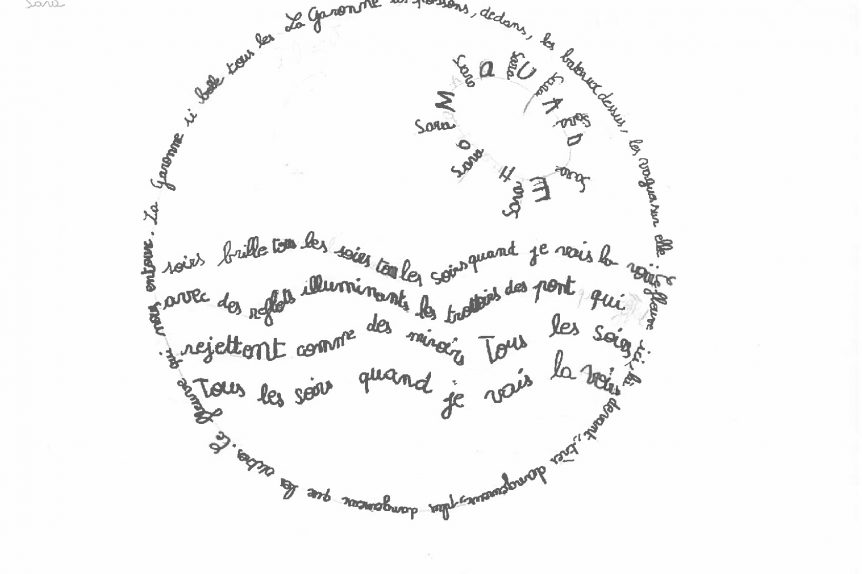 Sara
La Garonne les poissons, dedans, les bateaux dessus, les vagues sur elle
fleuve ici, là devant, très dangereux, plus dangereux que les autres. Le fleuve qui nous entoure. La Garonne ii brille tous les
Sara M Sara a Sara U Sara A Sara D Sara E Sara H Sara o
soirs brille tous les soirs tous les soirs quand je vais la voir
avec des reflets illuminants les trottoirs des pont qui
rejettont comme des miroirs Tous les soirs
Tous les soirs quand je vais la voir